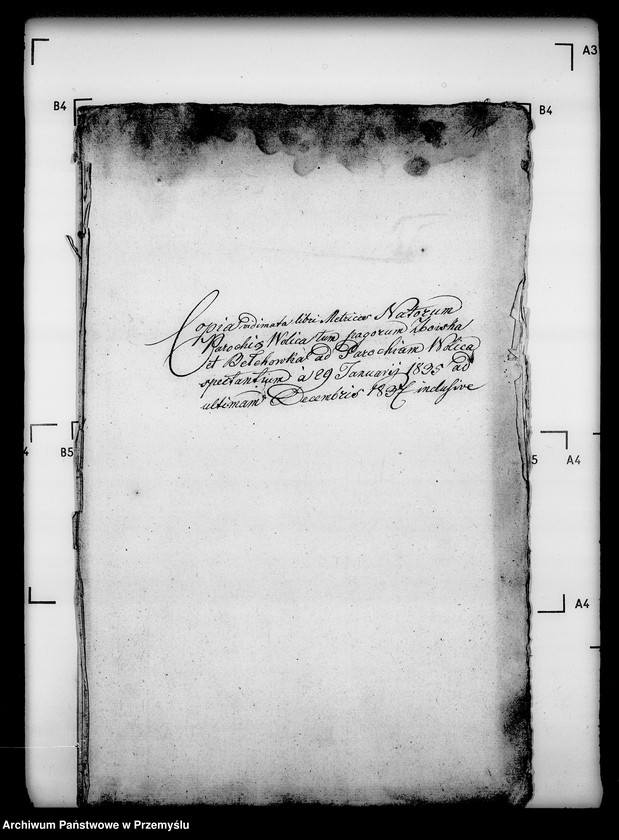 A3
B4
B4
Copia vidimata libri Metrices Natorum
Parochiӕ Wolica tum pagorum Zboiska
et Bełchowka ad Parochiam Wolica
spectantium à 29 Januarij 1835 ad
ultimam Decembris inclusive
4
B5
5
A4
A4
Archiwum Państwowe w Przemyślu